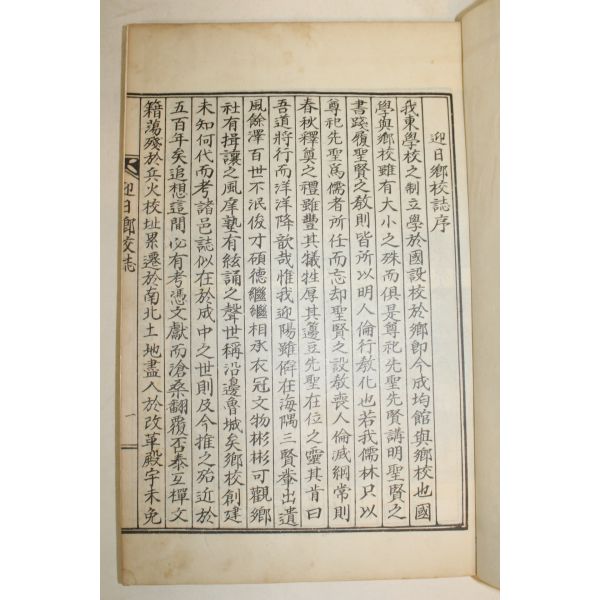 迎日鄕校誌序
我東學校之制立學於國設校於鄕卽今成均館與鄕校也國
學與鄕校雖有大小之殊而俱是尊祀先聖先賢講明聖賢之
書踐履聖賢之敎則皆所以明人倫行敎化也若我儒林只以
尊祀先聖爲儒者所任而忘却聖賢之設敎喪人倫滅綱常則
春秋釋奠之禮雖豊其犧牲厚其籩豆先聖在位之靈其肯曰
吾道將行而洋洋降歆哉惟我迎陽雖僻在海隅三賢輩出遺
風餘澤百世不泯俊才碩德繼繼相承衣冠文物彬彬可觀鄕
社有揖讓之風庠塾有絃誦之聲世稱沿邊魯城矣鄕校創建
未知何代而考諸邑誌似在於成中之世則及今推之殆近於
五百年矣追想這間必有考憑文獻而滄桑翻覆否泰互禪文
籍蕩殘於兵火校址累遷於南北土地盡入於改革殿宇未免
迎日鄕校志
一